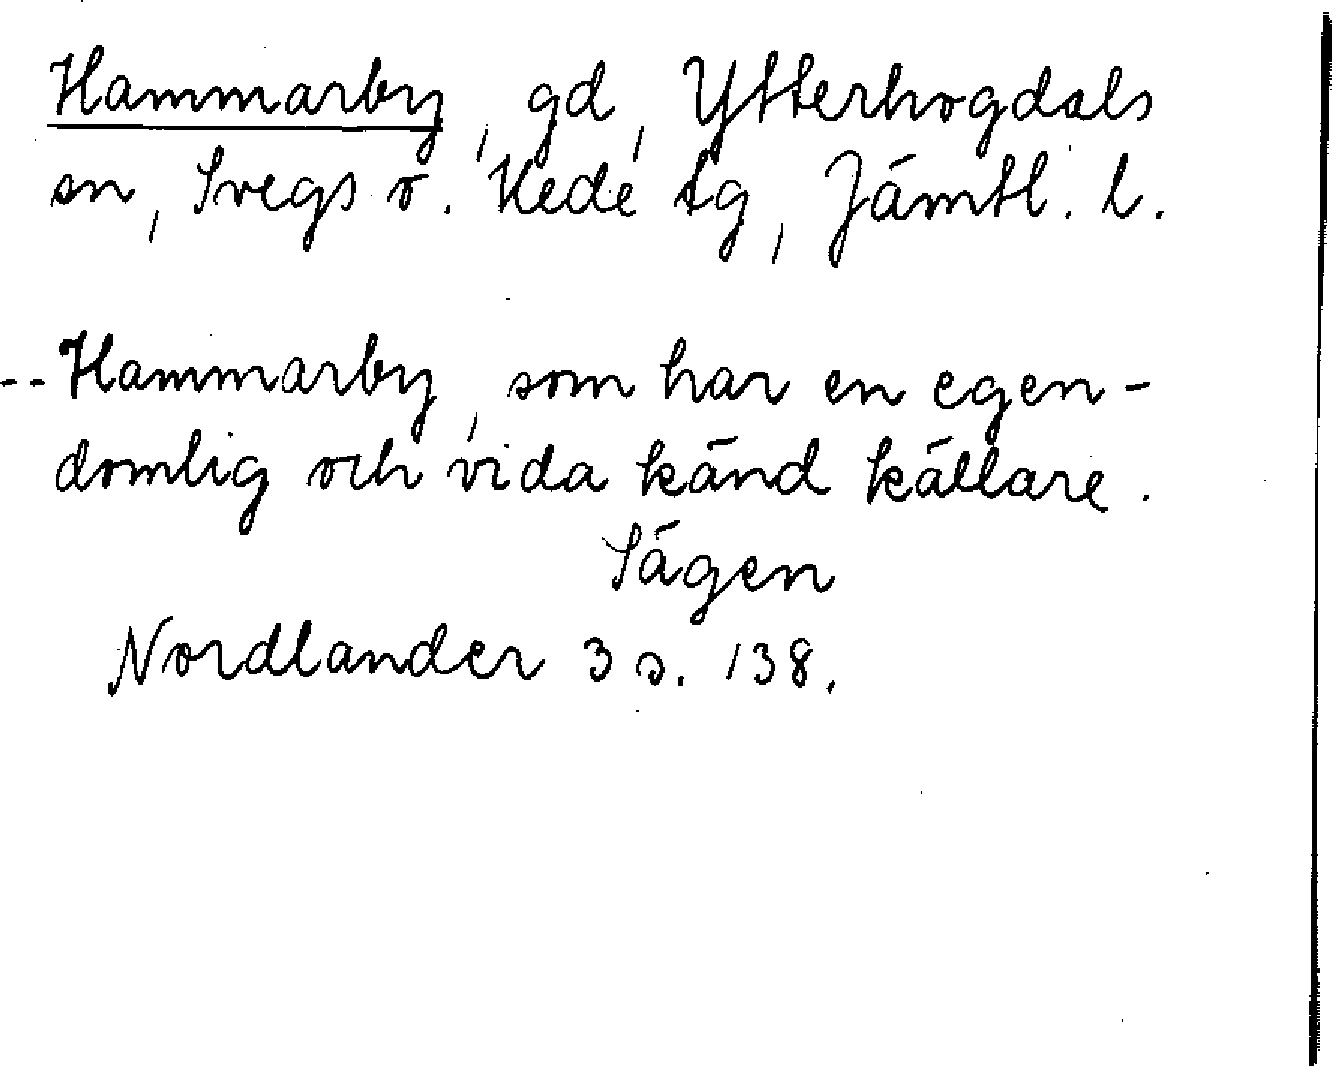 Hammarby, gd, Ytterhogdals
sn, Svegs o. Hede tg, Jämtl. l.
-- Hammarby, som har en egen-
domlig och vida känd källare.
Sägen
Nordlander 3 s. 138.